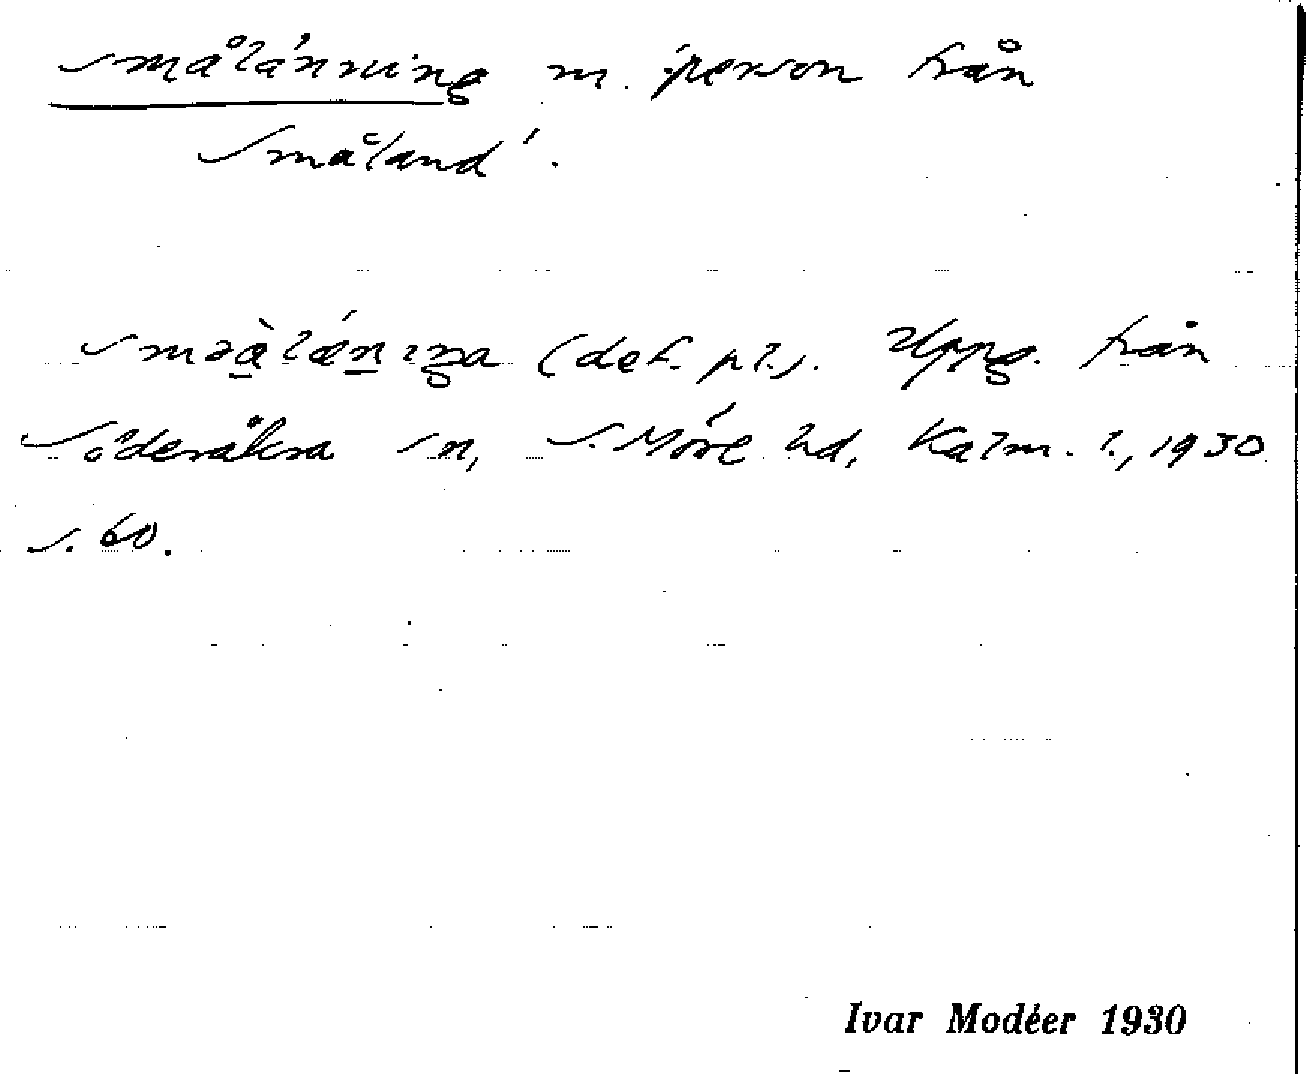 smålänning m. 'person från
Småland'.
(def. pl.). Uppg. från
Söderåkra sn, S. Möre hd, Kalm. l., 1930
s. 60.
Ivar Modéer 1930